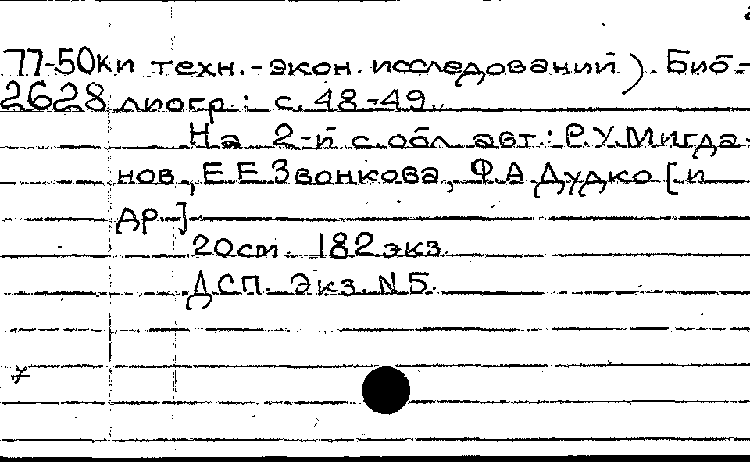 77-50ки техн.-экон. исследований). Биб-
2628 лиогр.: с. 48-49.
На 2-й с. обл. авт.: Р.У. Мигда-
нов, Е.Е. Звонкова, Ф.А. Дудко [и
др.]
20 см. 182 экз.
ДСП. Экз. N5.